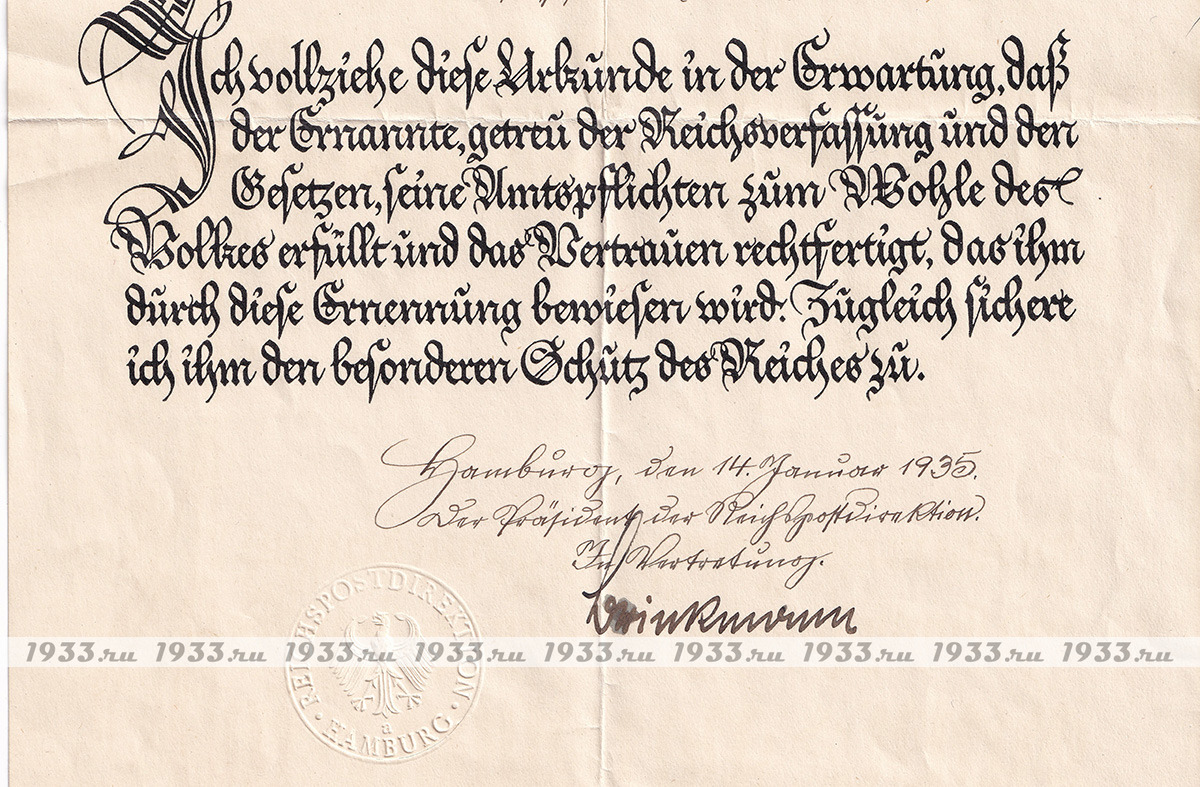 Ich vollziehe diese Urkunde in der Erwartung, daß
der Ernannte, getreu der Reichsverfassung und den
Gesetzen, seine Amtspflichten zum Wohle des
Volkes erfüllt und das Vertrauen rechtfertigt, das ihm
durch diese Ernennung bewiesen wird. Zugleich sichere
ich ihm den besonderen Schutz des Reiches zu.
Hamburg, den 14. Januar 1935.
Der Präsident der Reichspostdirektion.
In Vertretung.
Brinkmann
1933.ru 1933.ru 1933.ru 1933.ru 1933.ru 1933.ru 1933.ru 1933.ru 1933.ru
REICHSPOSTDIREKTION
a
HAMBURG